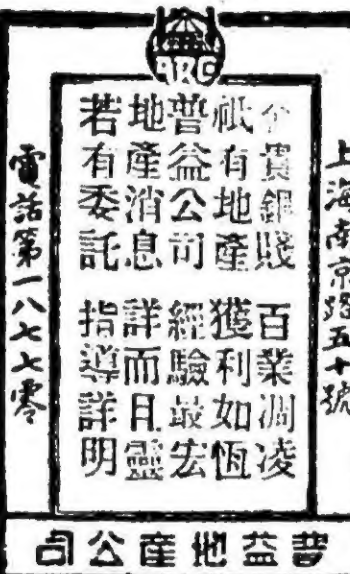 ARC
上海南京路五十號
金貴銀賤 百業凋凌
祇有地產 獲利如恆
普益公司 經驗最宏
地產消息 詳而且靈
若有委託 指導詳明
電話第一八七七零
普益地產公司